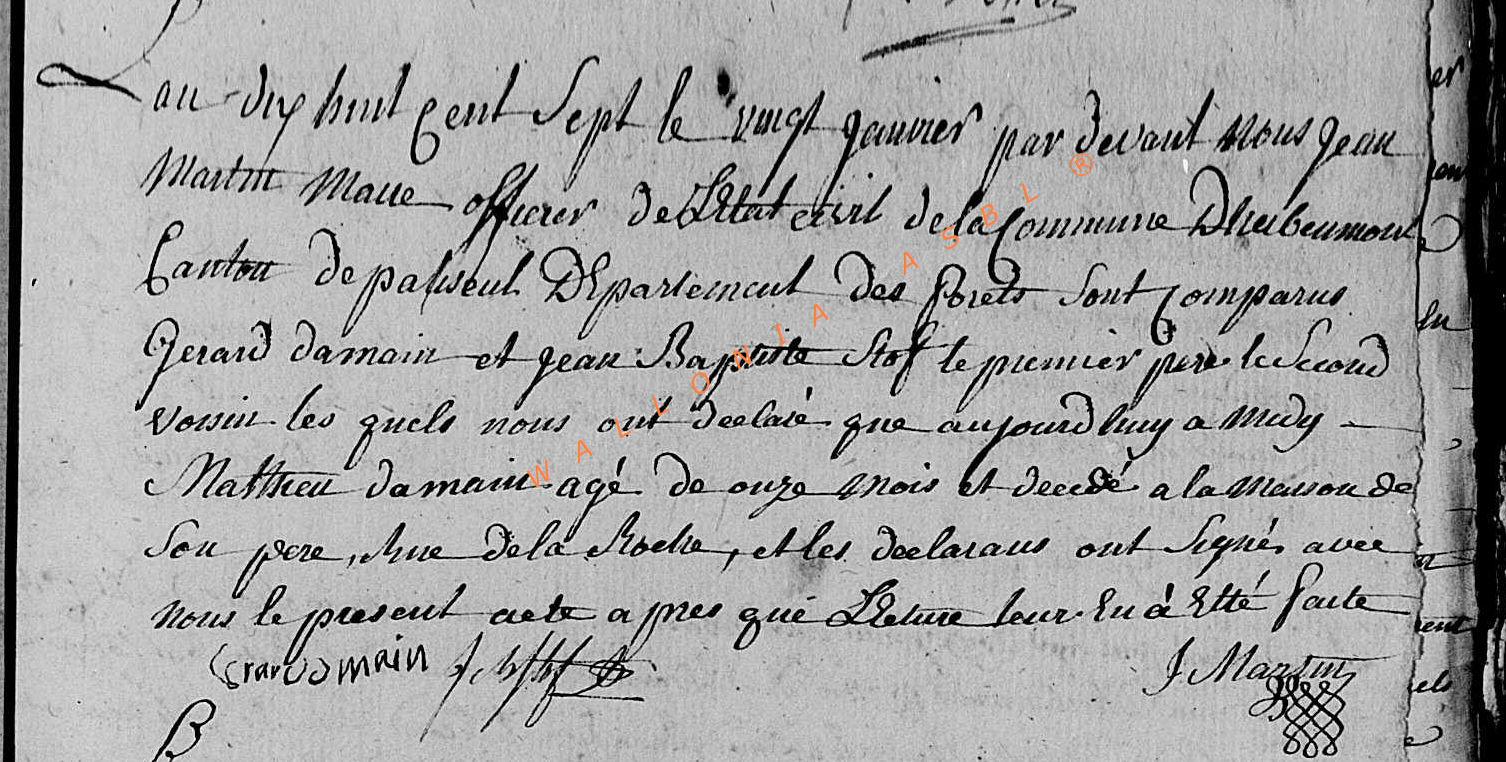 Lan dix huit cent Sept le vingt janvier par devant nous jean
Martin Maire officier de Letat civil de la Commune Dherbeumont
Canton de paliseul Département des forets sont comparus
Gerard damain et jean Baptiste Stof le premier pere le Second
voisin les quels nous ont déclaré que aujourdhuy a midy
Mathieu damain agé de onze mois et decédé a la maison de
Son pere, Rue de la Roche, et les declarans ont Signés avec
nous le present acte apres que Lecture leur En a Etté faite
damain
J Martin
B
WALLONIA ASBL ®